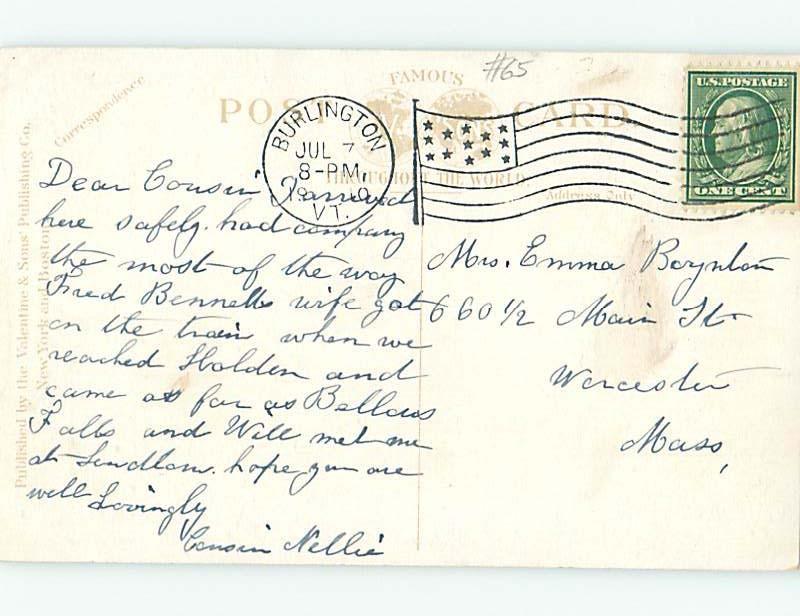 #65
FAMOUS
POST CARD
THROUGHOUT THE WORLD.
Correspondence
Address Only
Published by the Valentine & Sons' Publishing Co.,
New York and Boston
BURLINGTON
JUL 7
8-PM
VT.
U.S. POSTAGE
ONE CENT
Dear Cousin I arrived
here safely. had company
the most of the way
Fred Bennetts wife got
on the train when we
reached Holden and
came as far as Bellows
Falls and Will met me
at hope you are
well Lovingly
Cousin Nellie
Mrs. Emma Boynton
660 1/2 Main St
Worcester
Mass,